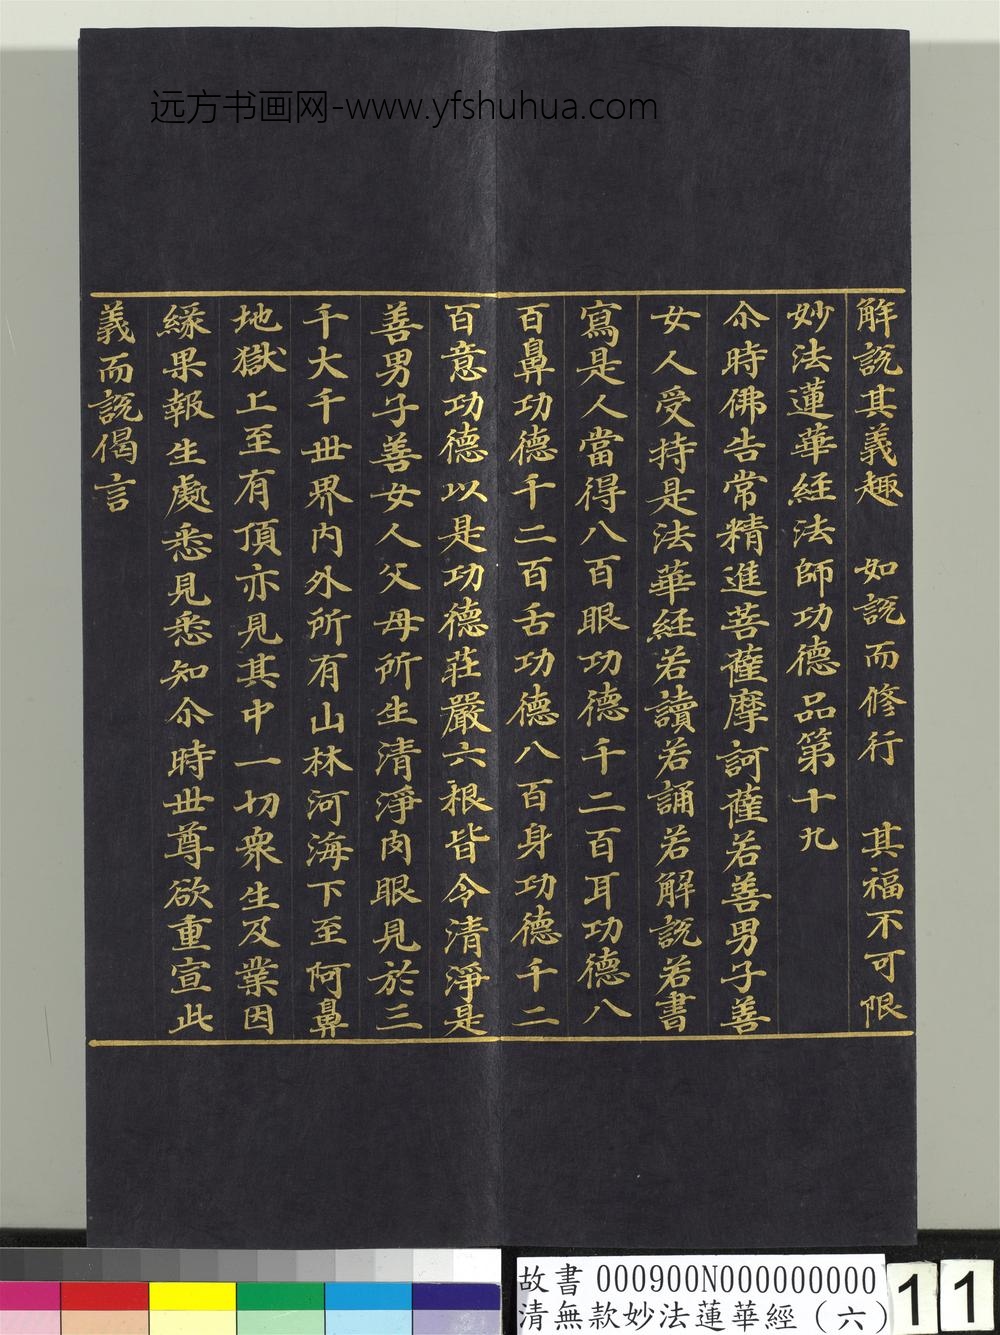 远方书画网-www.yfshuhua.com
解說其義趣　如說而修行　其福不可限
妙法蓮華經法師功德品第十九
尒時佛告常精進菩薩摩訶薩若善男子善
女人受持是法華經若讀若誦若解說若書
寫是人當得八百眼功德千二百耳功德八
百鼻功德千二百舌功德八百身功德千二
百意功德以是功德莊嚴六根皆令清淨是
善男子善女人父母所生清淨肉眼見於三
千大千世界內外所有山林河海下至阿鼻
地獄上至有頂亦見其中一切衆生及業因
緣果報生處悉見悉知尒時世尊欲重宣此
義而說偈言
故書 000900N000000000
清無款妙法蓮華經（六）
11